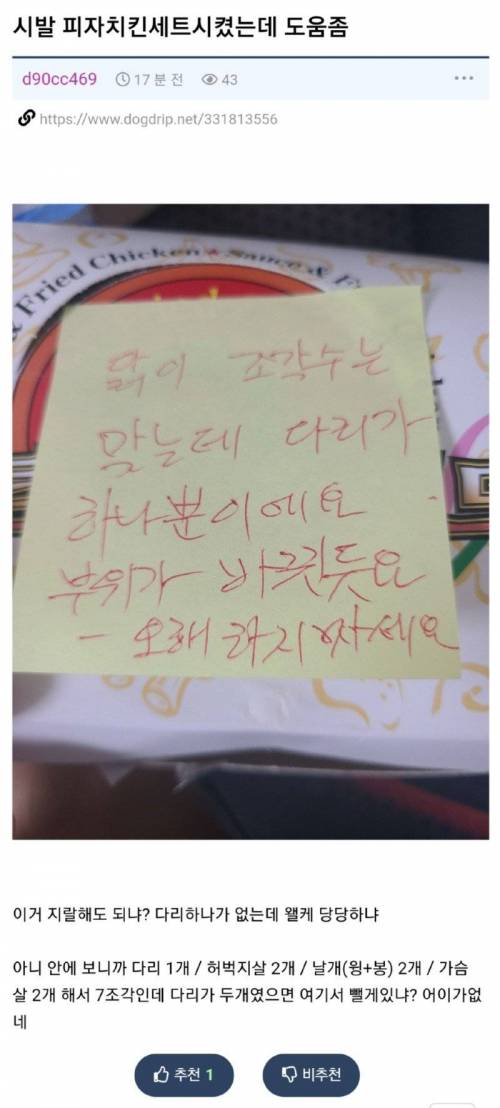 시발 피자치킨세트시켰는데 도움좀
d90cc469 17 분 전 43
https://www.dogdrip.net/331813556
& Fried Chicken & Sauce &
닭이 조각수는
맞는데 다리가
하나뿐이에요
부위가 바뀟듯요
- 오해 하지 마세요
이거 지랄해도 되냐? 다리하나가 없는데 왤케 당당하냐
아니 안에 보니까 다리 1개 / 허벅지살 2개 / 날개(윙+봉) 2개 / 가슴
살 2개 해서 7조각인데 다리가 두개였으면 여기서 뺄게있냐? 어이가없
네
추천 1 비추천